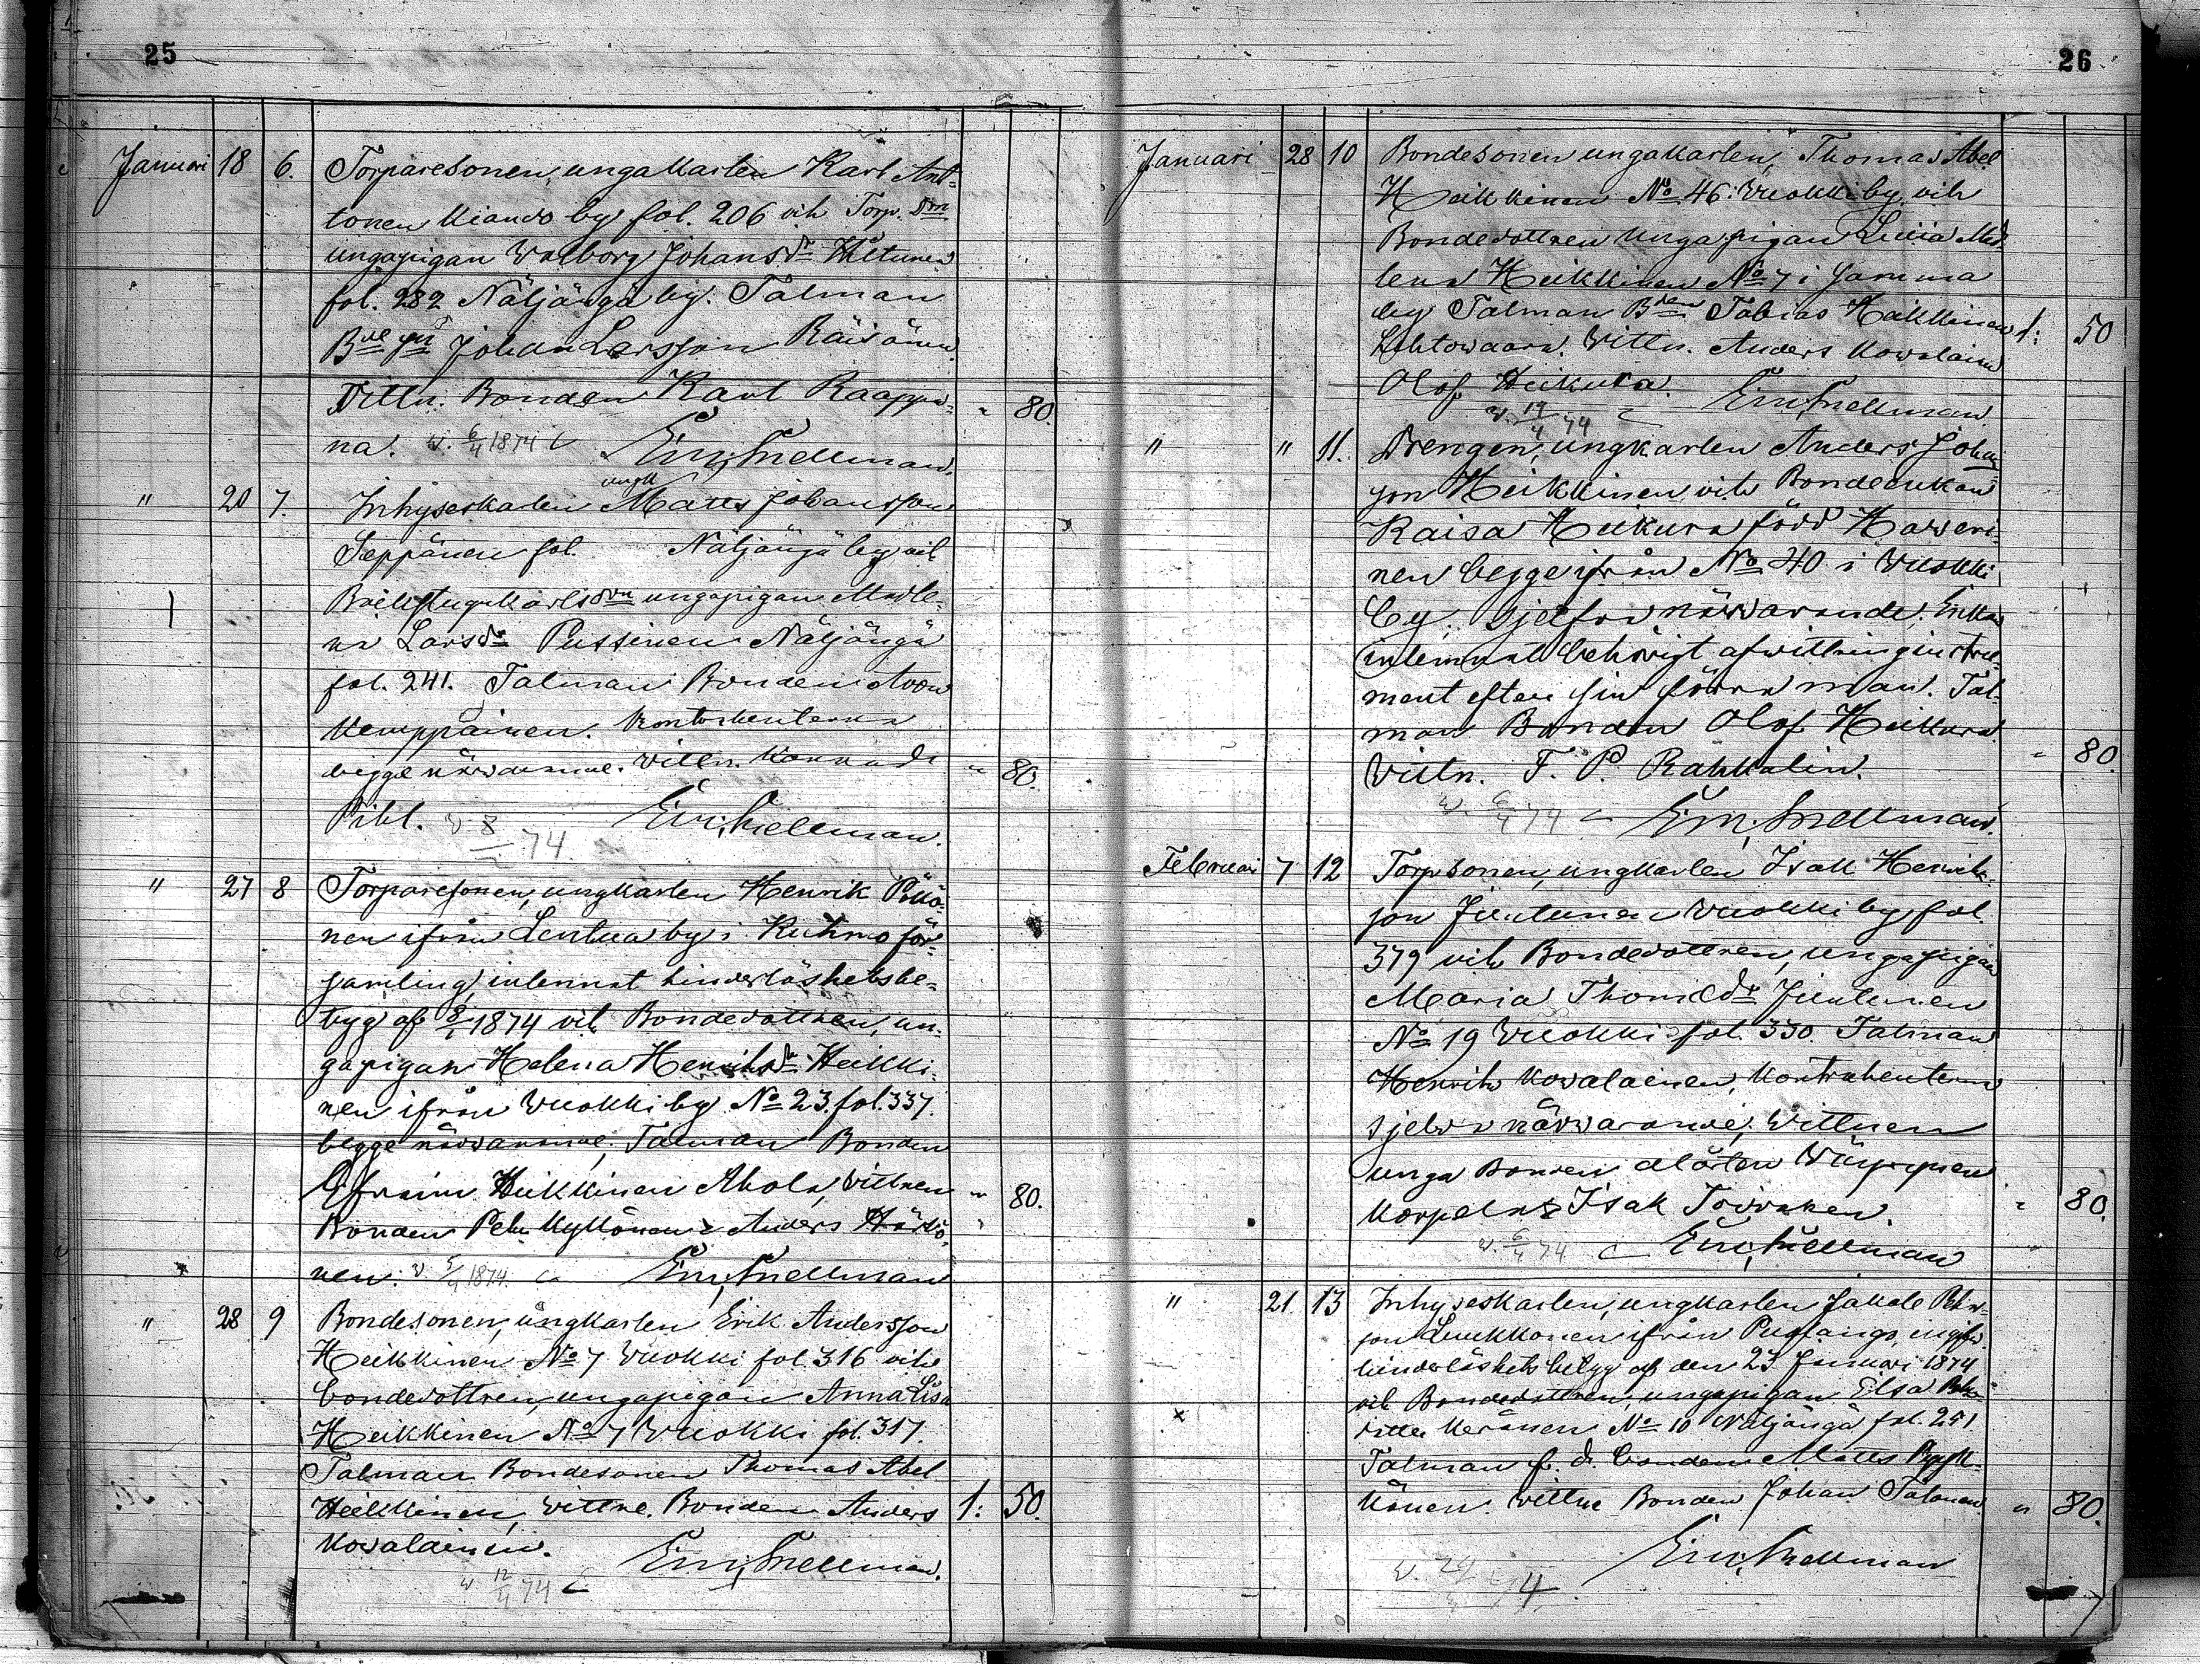 25
Januari 18 6. Torparesonen, ungakarlen Karl Ant-
tonen Kiando by fol. 206 vih Torp. drn
ungapigan Walborg Johansdr Hiltunen
fol. 282 Näljängä by. Talman
Johan Larsson Räisänen
Vittn. Bonden Karl Raappa- " 80.
na. w. 6/4 1874 Em. Snellman.
" 20 7. Inhyseskarlen ungk Matts Johansson
Seppänen fol. Näljängä by vih
ungapigan Madle-
na Larsdr Pussinen Näljängä
fol. 241. Talman Bonden Aron
Kemppainen. Kontrahenterna
begge närvarande. Vittn. " 80.
Pihl. w 8 74. Em. Snellman.
" 27 8 Torparesonen, ungkarlen Henrik
nen ifrån Lentua by i Kuhmo för-
samling, inlemnat hinderlöshetsbe-
tyg af 8/1 1874 vih Bondedottren, un-
gapigan Helena Henriksdr Heikki-
nen ifrån Vuokki by No 23. fol. 337.
begge närvarande. Talman Bonden
Efraim Heikkinen Ahola, Vittnen " 80.
Bonden Pehr Kyllönen & Anders Härkö-
nen. w 5/4 1874. Em. Snellman
" 28 9 Bondesonen, ungkarlen Erik Andersson
Heikkinen No 7 Vuokki fol. 316 vih
bondedottren, ungapigan Anna Lisa
Heikkinen No 7 Vuokki fol. 317.
Talman Bondesonen Thomas Abel
Heikkinen, Vittne. Bonden Anders 1: 50.
Kovalainen. Em. Snellman.
w. 12/4 74
26
Januari 28 10 Bondesonen ungakarlen, Thomas Abel
Heikkinen No 46. Vuokki by, vih
Bondedottren ungapigan Lucia Mad
lena Heikkinen No 7 i Jamma
by Talman Bden Tobias Heikkinen 1: 50
Lehtowaara. Vittn. Anders Kovalainen
Olof Heikura. Em. Snellman
w. 19/4 74
" " 11. Drengen, ungkarlen Anders Johan
son Heikkinen vih Bondeenkan
Kaisa Heikura född Haveri-
nen begge ifrån No 40 i Vuokki
by. Sjelfva närvarande. Enkan
inlemnat behörigt afvittringinstru-
ment efter sin förra man. Tal-
man Bonden Olof Heikura " 80.
Vittn. F. P. Rahkalin.
w. 6/4 74 Em. Snellman.
Februari 7 12 Torpsonen, ungkarlen Isak Henrik-
son Juntunen Vuokki by fol.
379 vih Bondedottren, ungapigan
Maria Thomædr Juntunen
No 19 Vuokki fol. 330. Talman
Henrik Kovalainen, Kontrahenterna
sjelva närvarande, Vittnen
unga Bonden Mårten Wäyrynen
Korpela & Isak Toivanen. " 80.
w. 6/4 74 Em. Snellman
" 21. 13 Inhyseskarlen, ungkarlen Jakob Pehr-
son Luukkonen ifrån
hinderlöshets betyg af den 23 Januari 1874
vih Bondedottren, ungapigan Elsa
Keränen No 10 Näljängä fol. 251.
Talman f. d. bonden Matts Pyyk-
könen. Vittne Bonden Johan Talonen " 80.
Em. Snellman
w. 24